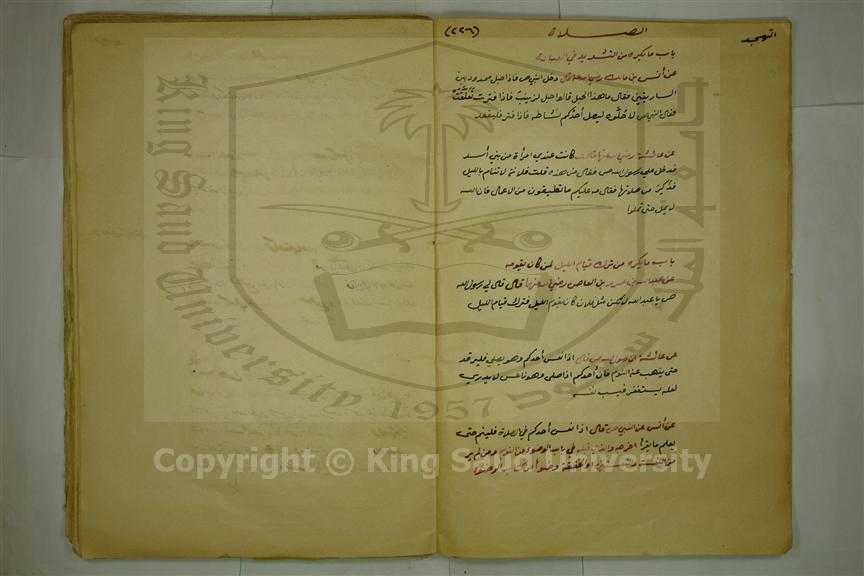 التهجد
الصلاة
(٢٢٦)
باب ما يكره من التشديد في العبادة
عن أنس بن مالك رضي الله عنه قال دخل النبي ص فاذا حبل ممدود بين
الساريتين فقال ما هذا الحبل قالوا حبل لزينب فاذا فترت تعلقت
فقال النبي ص لا حلوه ليصل أحدكم نشاطه فاذا فتر فليقعد
عن عائشة رضي الله عنها قالت كانت عندي امرأة من بني أسد
فدخل علي رسول الله ص فقال من هذه قلت فلانة لا تنام بالليل
فذكر من صلاتها فقال مه عليكم ما تطيقون من الأعمال فان الله
لا يمل حتى تملوا
باب ما يكره من ترك قيام الليل لمن كان يقومه
عن عبدالله بن عمرو بن العاص رضي الله عنهما قال قال لي رسول الله
ص يا عبدالله لا تكن مثل فلان كان يقوم الليل فترك قيام الليل
عن عائشة أن رسول الله ص قال اذا نعس أحدكم وهو يصلي فليرقد
حتى يذهب عنه النوم فان أحدكم اذا صلى وهو ناعس لا يدري
لعله يستغفر فيسب نفسه
عن أنس عن النبي ص قال اذا نعس أحدكم في الصلاة فلينم حتى
يعلم ما يقرأ اخرجه والذي قبله في باب الوضوء من النوم ومن لم ير
من النعسة والنعستين أو الخفقة وضوءا من كتاب الوضوء
King Saud University
1957
جامعة الملك سعود
Copyright © King Saud University